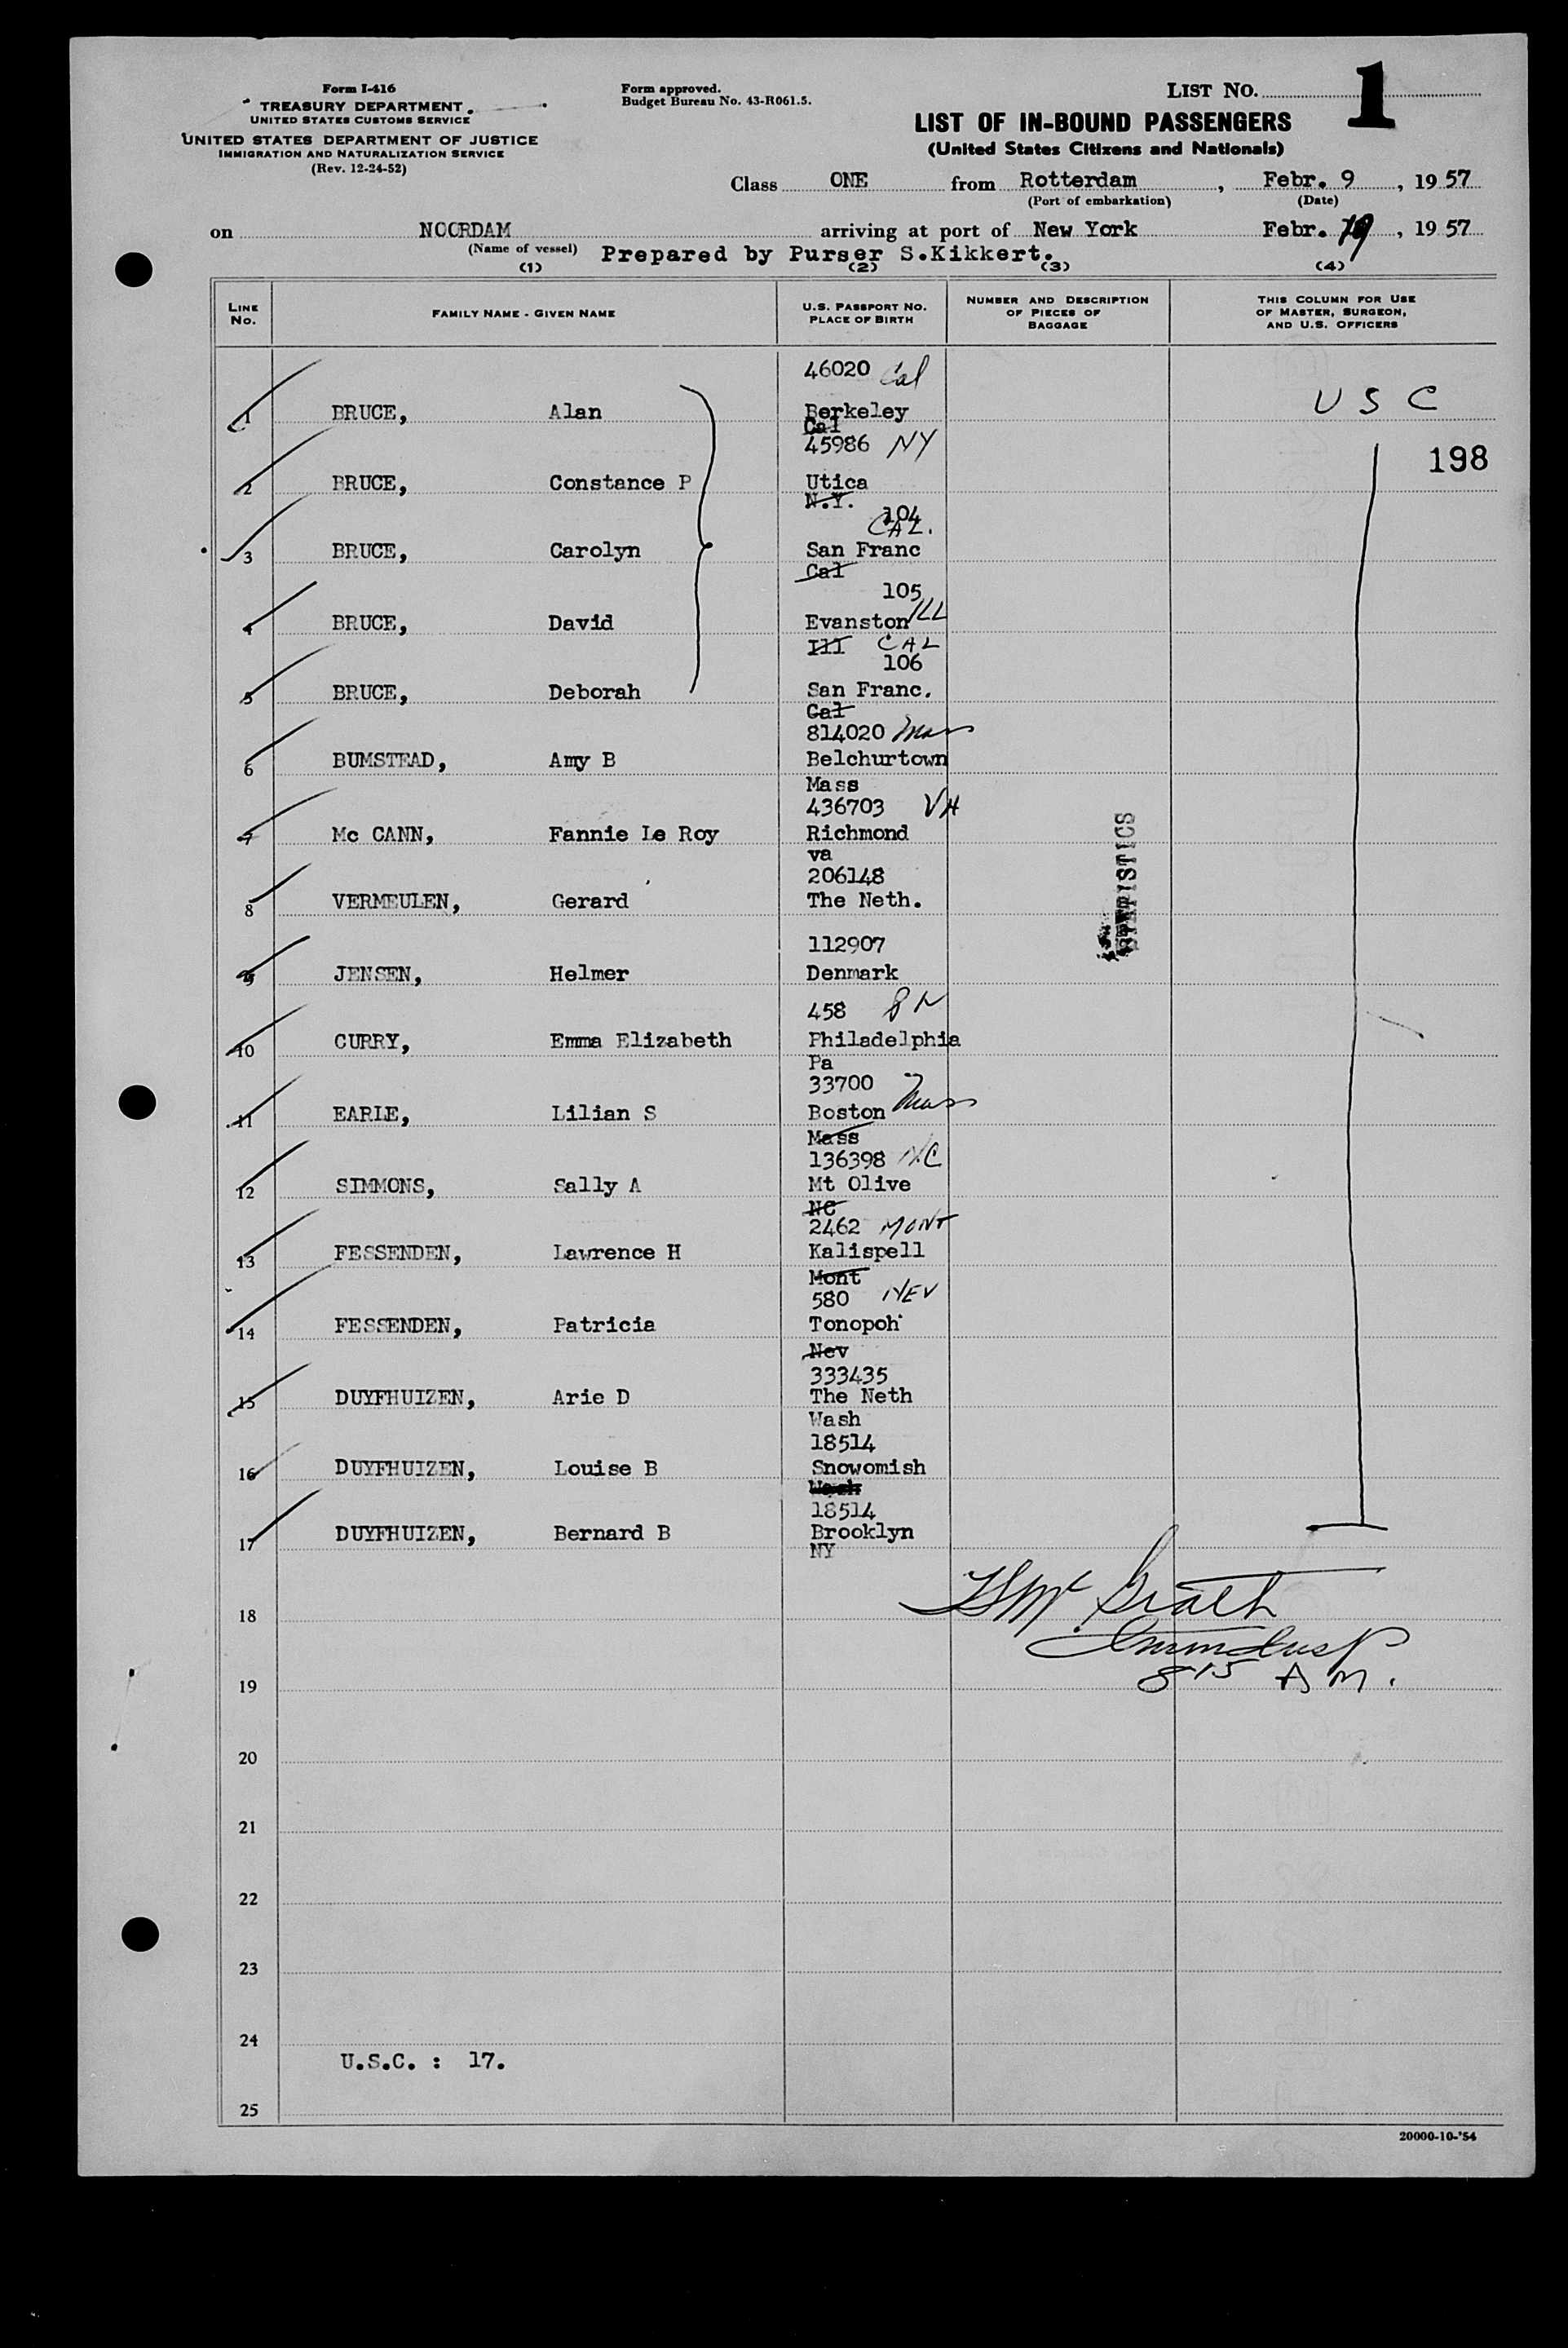 Form I-416
TREASURY DEPARTMENT
UNITED STATES CUSTOMS SERVICE
UNITED STATES DEPARTMENT OF JUSTICE
IMMIGRATION AND NATURALIZATION SERVICE
(Rev. 12-24-52)
Form approved.
Budget Bureau No. 43-R061.5.
LIST NO. 1
LIST OF IN-BOUND PASSENGERS
(United States Citizens and Nationals)
Class ONE from Rotterdam, Febr. 9, 1957
(Port of embarkation) (Date)
on NOORDAM arriving at port of New York Febr. 19, 1957
(Name of vessel) Prepared by Purser S.Kikkert.
(1) (2) (3) (4)
LINE No. FAMILY NAME - GIVEN NAME U.S. PASSPORT NO. PLACE OF BIRTH NUMBER AND DESCRIPTION OF PIECES OF BAGGAGE THIS COLUMN FOR USE OF MASTER, SURGEON, AND U.S. OFFICERS
46020 Cal
1 BRUCE, Alan Berkeley U S C
Cal
45986 NY 198
2 BRUCE, Constance P Utica
N.Y.
104
CAL.
3 BRUCE, Carolyn San Franc
Cal
105
4 BRUCE, David Evanston ILL
Ill CAL
106
5 BRUCE, Deborah San Franc.
Cal
814020 Mass
6 BUMSTEAD, Amy B Belchurtown
Mass
436703 VA
7 Mc CANN, Fannie Le Roy Richmond
va
206148
8 VERMEULEN, Gerard The Neth.
STATISTICS
112907
9 JENSEN, Helmer Denmark
458
10 CURRY, Emma Elizabeth Philadelphia
Pa
33700 Mass
11 EARLE, Lilian S Boston
Mass
136398 NC
12 SIMMONS, Sally A Mt Olive
NC
2462 MONT
13 FESSENDEN, Lawrence H Kalispell
Mont
580 NEV
14 FESSENDEN, Patricia Tonopoh
Nev
333435
15 DUYFHUIZEN, Arie D The Neth
Wash
18514
16 DUYFHUIZEN, Louise B Snowomish
Wash
18514
17 DUYFHUIZEN, Bernard B Brooklyn
NY
18
19
8 15 A M.
20
21
22
23
24
U.S.C. : 17.
25
20000-10-'54